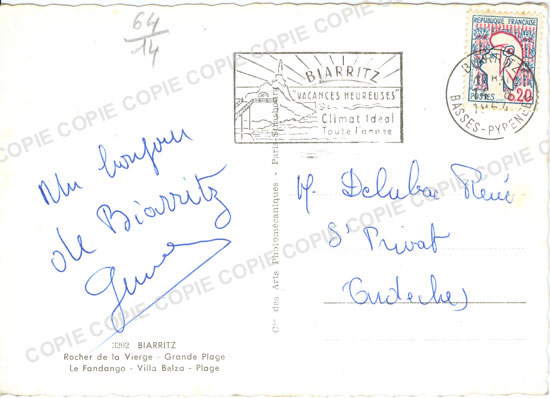 64
14
BIARRITZ
"VACANCES HEUREUSES"
Climat Idéal
Toute l'année
REPUBLIQUE FRANÇAISE
POSTES
0,20
BASSES-PYRENEES
Un bonjour
de Biarritz
M. Delubac René
St Privat
Ardèche
Cie des Arts Photomécaniques - Paris-Strasbourg
3202 BIARRITZ
Rocher de la Vierge - Grande Plage
Le Fandango - Villa Belza - Plage
COPIE COPIE COPIE COPIE COPIE COPIE